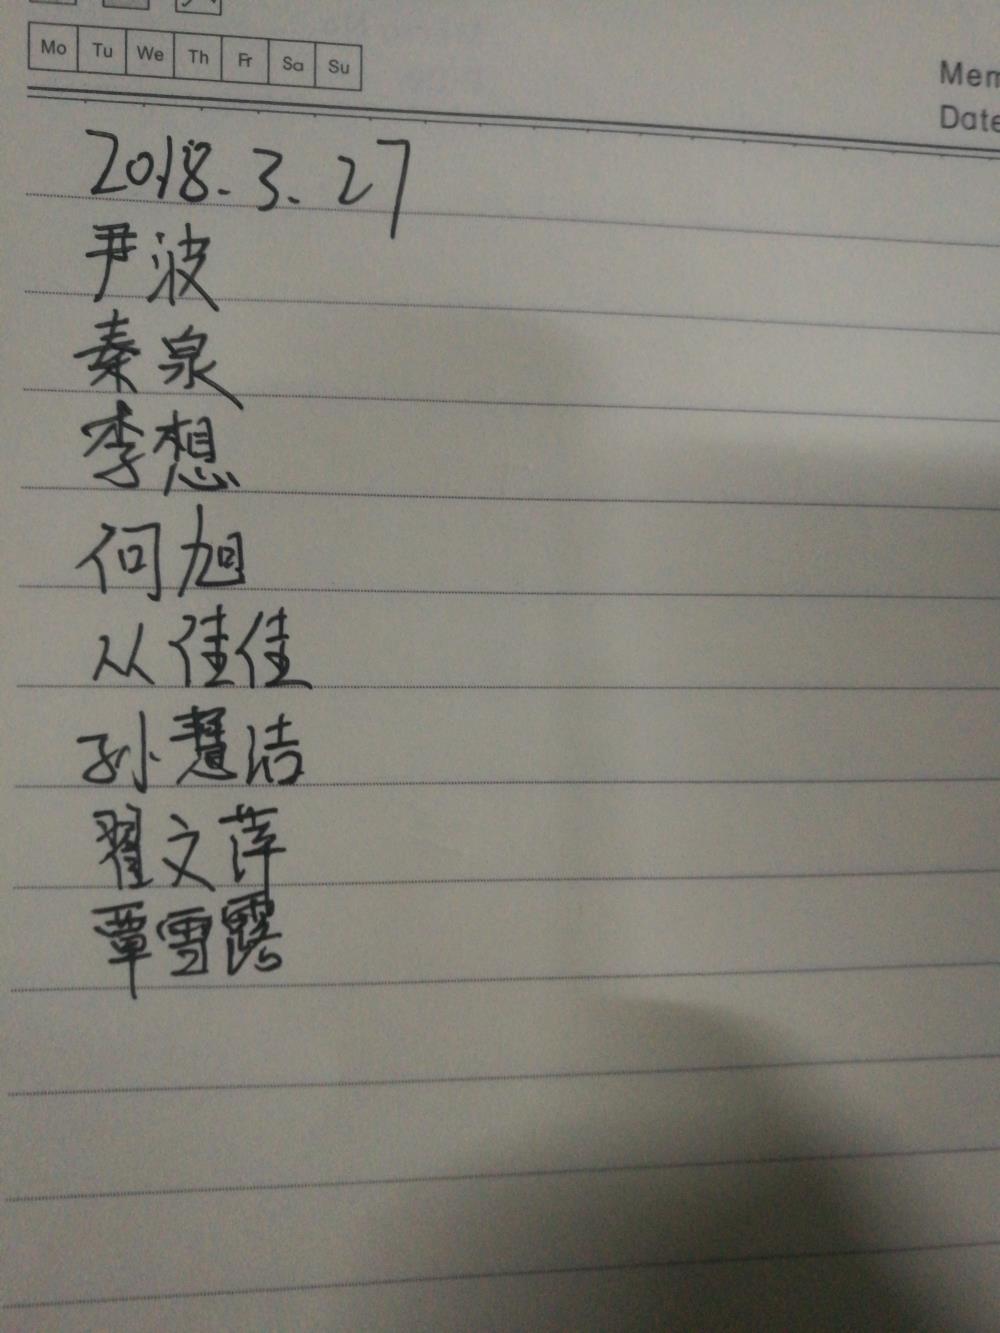 Mo Tu We Th Fr Sa Su
Mem
Date
2018.3.27
尹波
秦泉
李想
何旭
从佳佳
孙慧洁
翟文萍
覃雪露